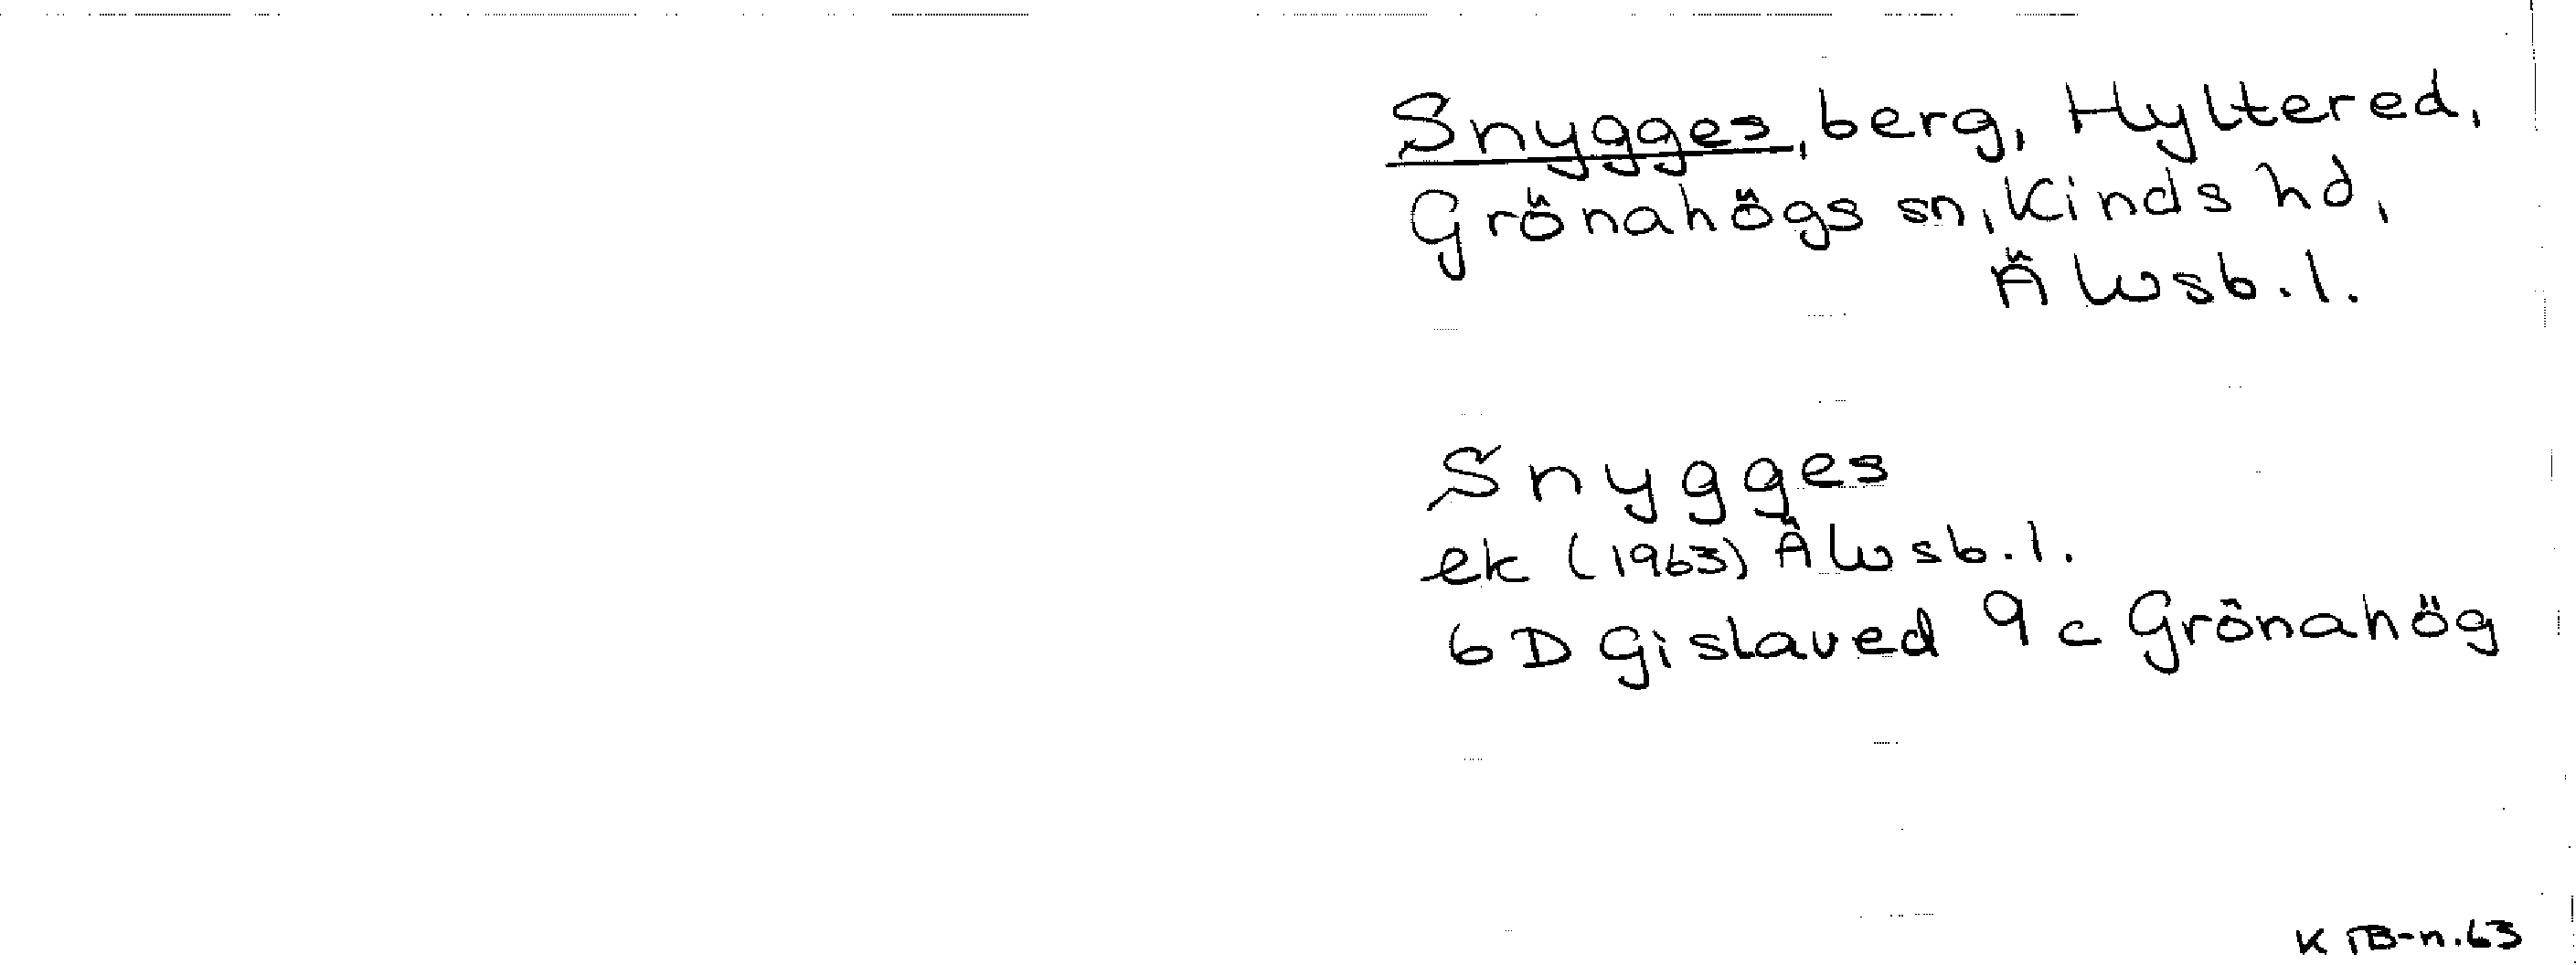 Snygges, berg, Hyltered,
Grönahögs sn, Kinds hd,
Älvsb. l.
Snygges
ek (1963) Älvsb. l.
6D Gislaved 9c Grönahög
K TB-n. 63